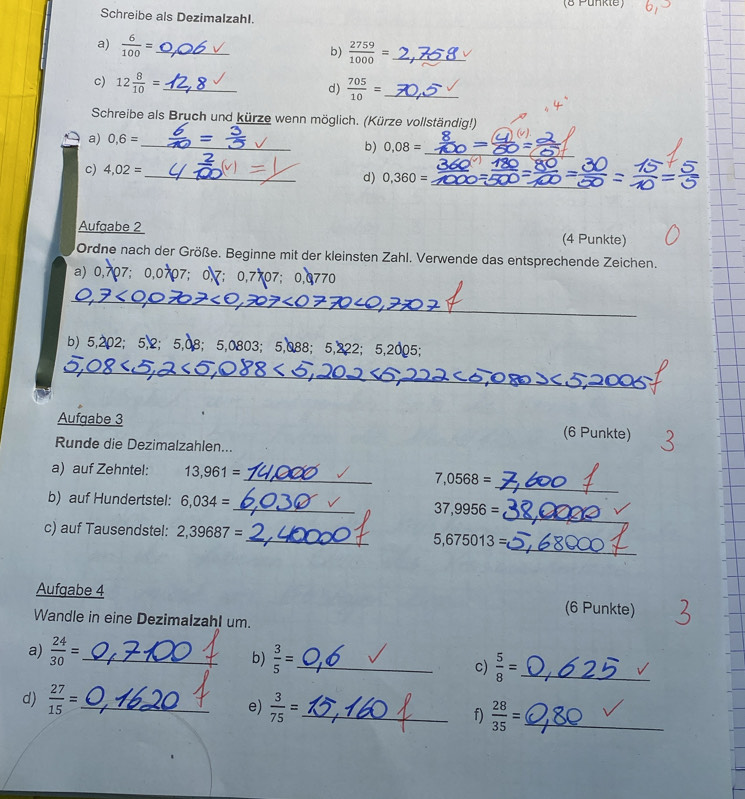 (8 Punkte) 6,5
Schreibe als Dezimalzahl.
a) 6/100 = 0,06 ✓ b) 2759/1000 = 2,758 ✓
c) 12 8/10 = 12,8 ✓ d) 705/10 = 70,5 ✓
"4"
Schreibe als Bruch und kürze wenn möglich. (Kürze vollständig!)
a) 0,6 = 6/10 = 3/5 ✓ b) 0,08 = 8/100 = 4/50 (✓) = 2/5 f
c) 4,02 = 4 2/100 (✓) = d) 0,360 = 360/1000 (✓) = 180/500 = 80/100 = 30/50 = 15/10 = 5/5 f
Aufgabe 2 (4 Punkte) 0
Ordne nach der Größe. Beginne mit der kleinsten Zahl. Verwende das entsprechende Zeichen.
a) 0,707; 0,0707; 0,7; 0,7707; 0,0770
0,7 < 0,0707 < 0,707 < 0770 < 0,7707 f
b) 5,202; 5,2; 5,08; 5,0803; 5,088; 5,222; 5,2005;
5,08 < 5,2 < 5,088 < 5,202 < 5,222 < 5,0803 < 5,2005 f
Aufgabe 3 (6 Punkte) 3
Runde die Dezimalzahlen...
a) auf Zehntel: 13,961 = 14,000 ✓ 7,0568 = 7,600 f
b) auf Hundertstel: 6,034 = 6,030 ✓ 37,9956 = 38,0000 ✓
c) auf Tausendstel: 2,39687 = 2,40000 f 5,675013 = 5,68000 f
Aufgabe 4 (6 Punkte) 3
Wandle in eine Dezimalzahl um.
a) 24/30 = 0,7100 f b) 3/5 = 0,6 ✓ c) 5/8 = 0,625 ✓
d) 27/15 = 0,1620 f e) 3/75 = 15,160 f f) 28/35 = 0,80 ✓